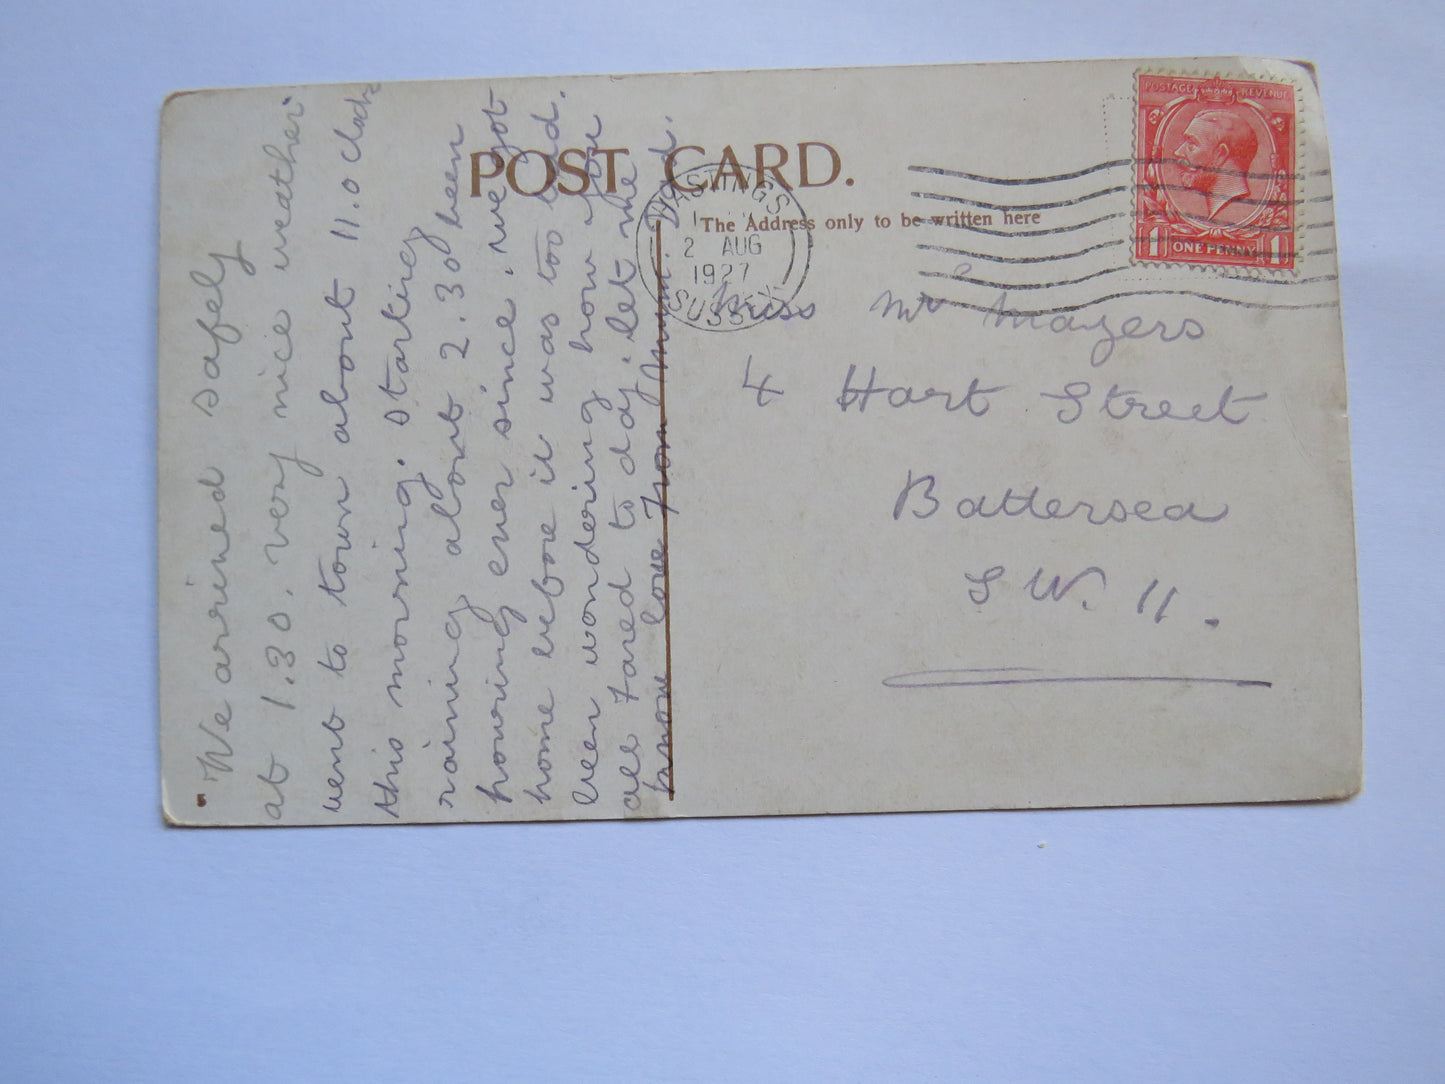 POST CARD.
The Address only to be written here
POSTAGE REVENUE
1 ONE PENNY 1
HASTINGS
2 AUG
1927
SUSSEX
We arrived safely
at 1.30. very nice weather
went to town about 11.0 clock
this morning. starting
raining about 2.30 been
pouring ever since. we got
home before it was too bad.
been wondering how you
all fared to day. let me
know love from Mum. Dad.
Miss M Mayers
4 Hart Street
Battersea
S W. 11.